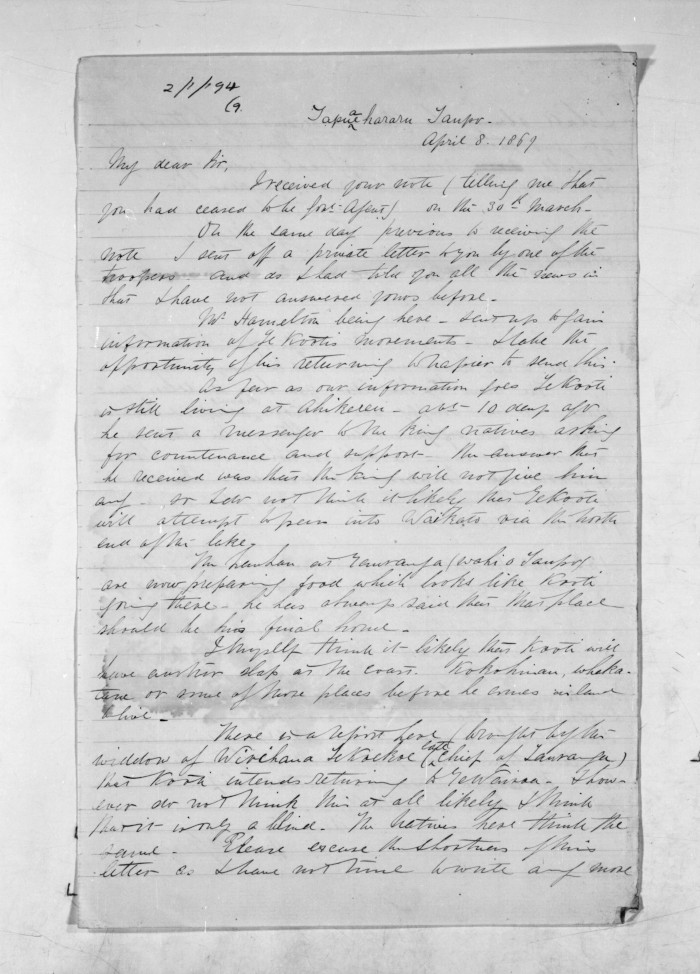 2/1/194
69.
Tapuaehararu Taupo.
April 8. 1869
My dear Sir,
I received your note (telling me that
you had ceased to be Govt. Agent) on the 30th March.
On the same day previous to receiving the
note I sent off a private letter to you by one of the
troopers and as I had told you all the news in
that I have not answered yours before.
Mr Hamelton being here - sent up to gain
information of Te Kootis movements. I take the
opportunity of his returning to Napier to send this.
As far as our information goes Te Kooti
is still living at Ahikereu - abt 10 days ago
he sent a messenger to the King natives asking
for countenance and support - the answer that
he received was that the King will not give him
any - so I do not think it likely that Te Kooti
will attempt to pass into Waikato via the north
end of the lake.
The hauhau at Tauranga (wahi o Taupo)
are now preparing food which looks like Kooti
going there - he has always said that that place
should be his final home.
I myself think it likely that Kooti will
have another slap at the coast. Kokohinau, whaka-
tane or some of those places before he comes inland
to live -
There is a report here (brought by the
widdow of Wirihana Te Koekoe late Chief of Tauranga)
that Kooti intends returning to Te Wairoa - I how-
ever do not think this at all likely I think
that it is only a blind. The Natives here think the
same - Please excuse the shortness of this
letter as I have not time to write any more